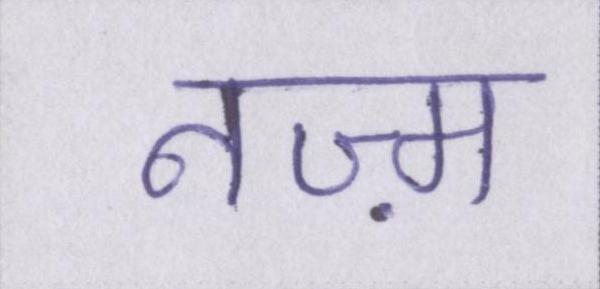 नज़्म